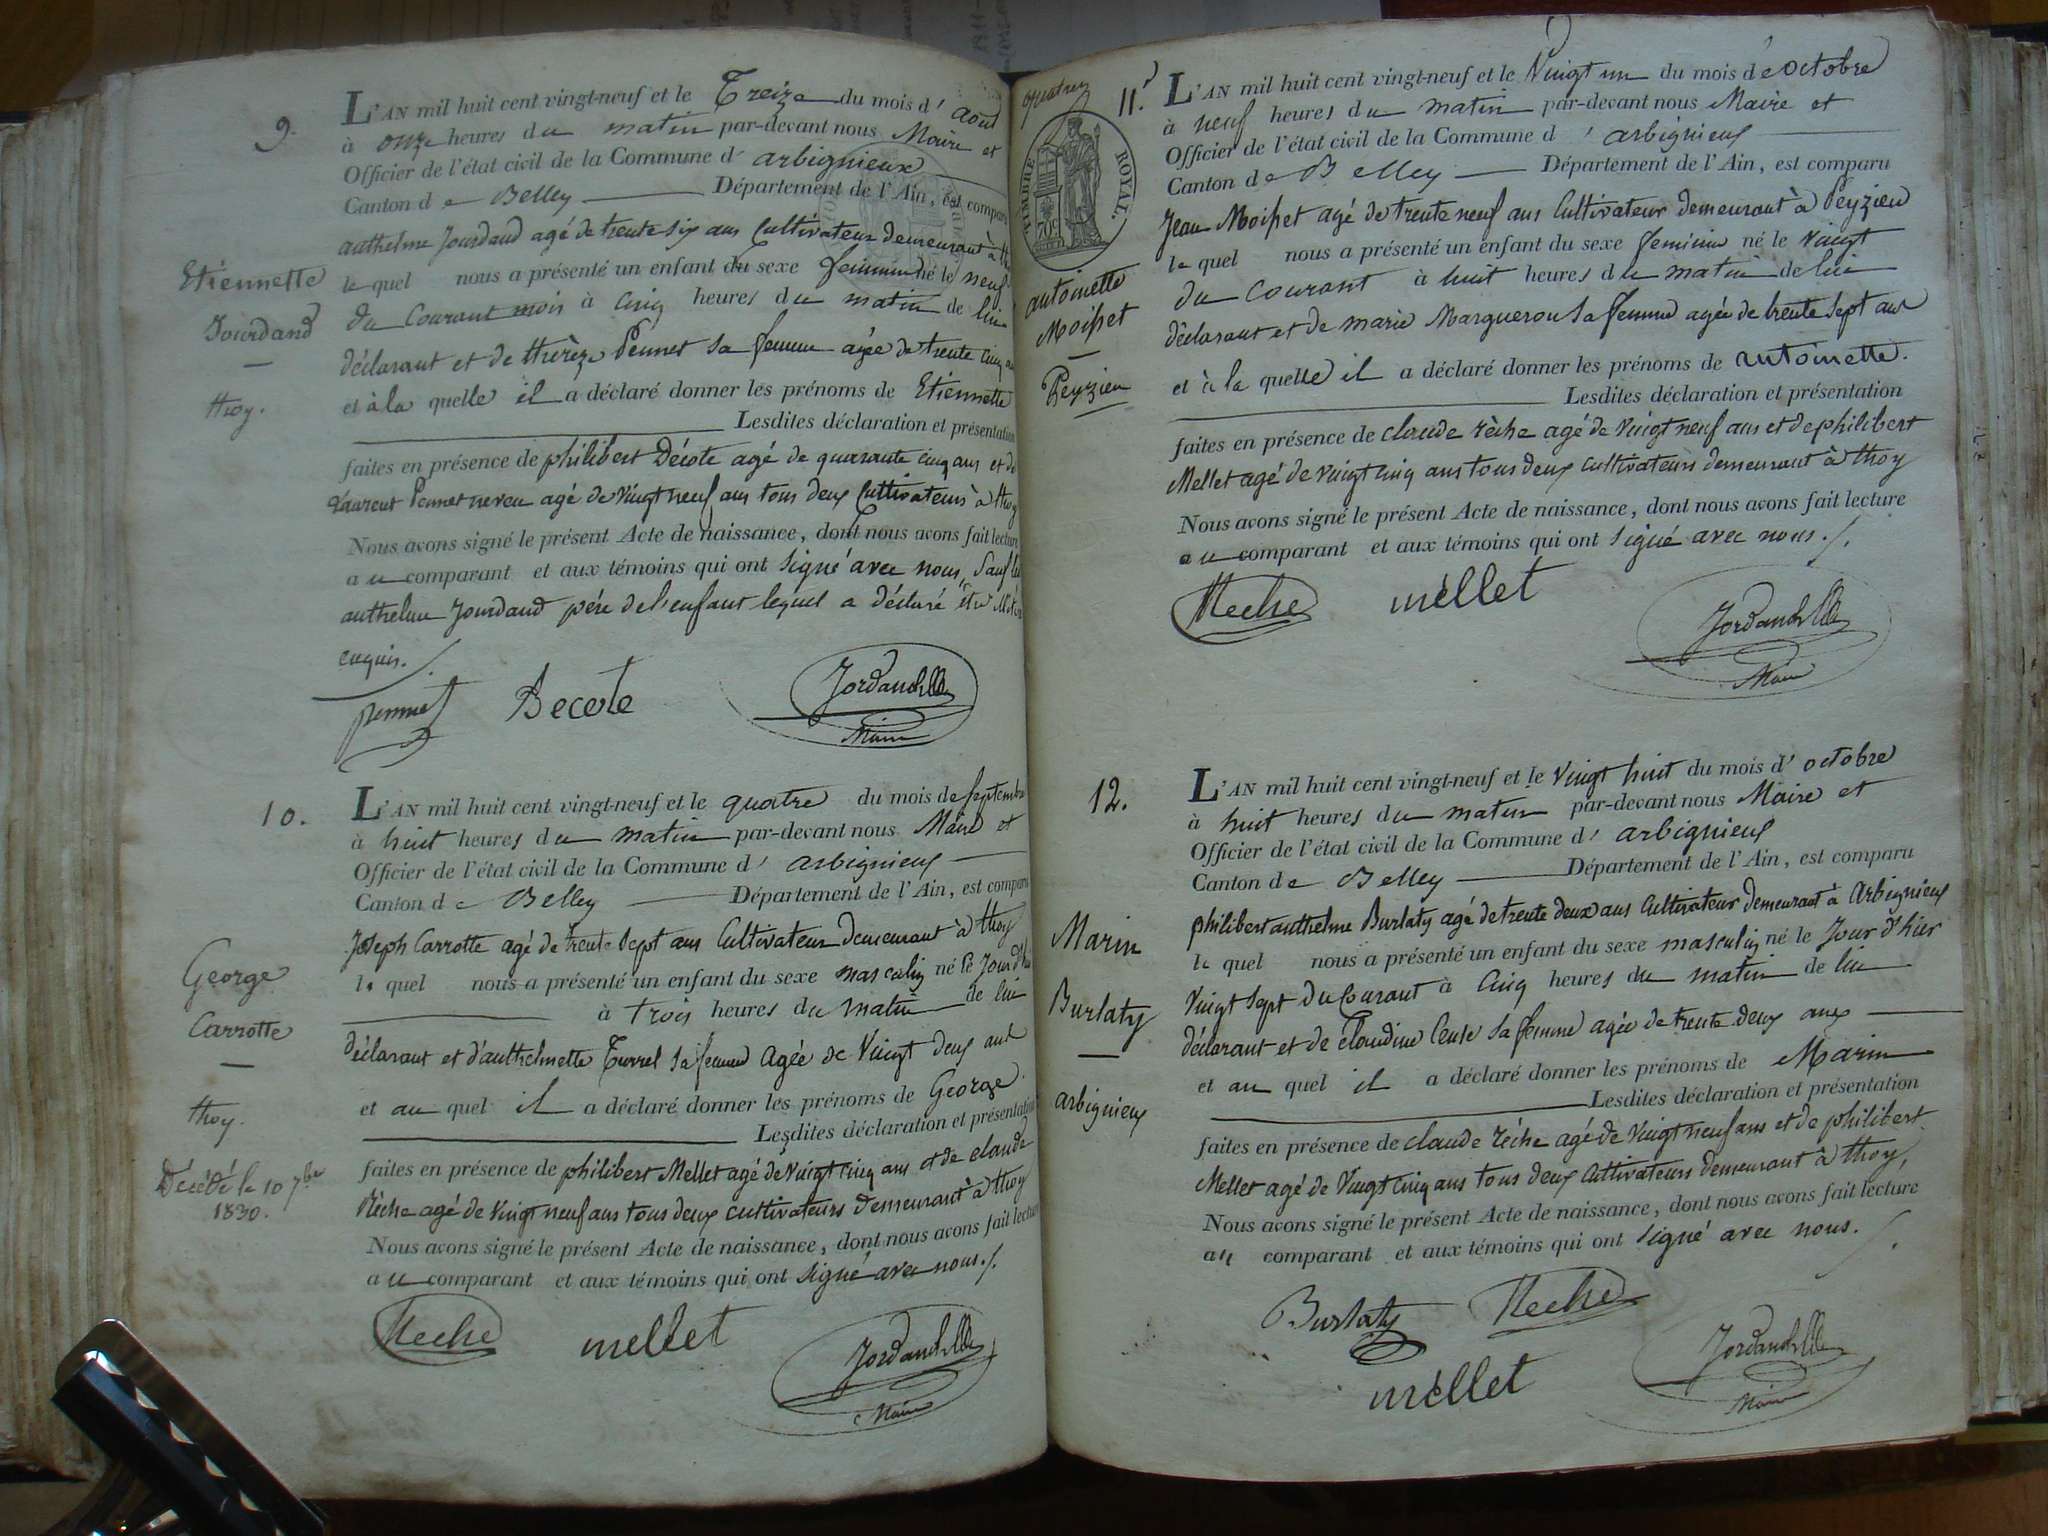 9.
L'AN mil huit cent vingt-neuf et le Treize du mois d' août
à onze heures du matin par-devant nous Maire et
Officier de l'état civil de la Commune d' arbignieux
Canton de Belley Département de l'Ain, est comparu
anthelme Jourdand agé de trente six ans Cultivateur demeurant à
le quel nous a présenté un enfant du sexe feminin né le neuf
du Courant mois à cinq heures du matin de lui
déclarant et de thérèze Pennet sa femme agée de trente cinq
et à la quelle il a déclaré donner les prénoms de Etiennette
Lesdites déclaration et présentation
faites en présence de philibert Décote agé de quarante cinq ans et de
Laurent Pennet neveu agé de vingt neuf ans tous deux Cultivateurs à thoy
Nous avons signé le présent Acte de naissance, dont nous avons fait lecture
au comparant et aux témoins qui ont signé avec nous, Sauf
anthelme Jourdand père de l'enfant lequel a déclaré être
enquis.
Etiennette
Jourdand
thoy.
pennet Decote Jordan Maire
10.
L'AN mil huit cent vingt-neuf et le quatre du mois de Septembre
à huit heures du matin par-devant nous Maire et
Officier de l'état civil de la Commune d' arbignieux
Canton de Belley Département de l'Ain, est comparu
Joseph Carrotte agé de trente sept ans Cultivateur demeurant à thoy
le quel nous a présenté un enfant du sexe masculin né le Jour
à trois heures du matin de lui
déclarant et d'anthelmette Turrel sa femme agée de Vingt deux ans
et au quel il a déclaré donner les prénoms de George
Lesdites déclaration et présentation
faites en présence de philibert Mellet agé de vingt cinq ans et de claude
Rèche agé de vingt neuf ans tous deux cultivateurs demeurant à thoy
Nous avons signé le présent Acte de naissance, dont nous avons fait lecture
au comparant et aux témoins qui ont signé avec nous./.
George
Carrotte
thoy.
Décédé le 10 7bre
1830.
Reche mellet Jordan Maire
TIMBRE ROYAL.
70c
11.
L'AN mil huit cent vingt-neuf et le Vingt un du mois de octobre
à neuf heures du matin par-devant nous Maire et
Officier de l'état civil de la Commune d' arbignieux
Canton de Belley Département de l'Ain, est comparu
Jean Moisset agé de trente neuf ans Cultivateur demeurant à Peyzieu
le quel nous a présenté un enfant du sexe feminin né le vingt
du Courant à huit heures du matin de lui
déclarant et de marie Marguerou sa femme agée de trente sept ans
et à la quelle il a déclaré donner les prénoms de antoinette.
Lesdites déclaration et présentation
faites en présence de claude rèche agé de Vingt neuf ans et de philibert
Mellet agé de vingt cinq ans tous deux cultivateurs demeurant à thoy
Nous avons signé le présent Acte de naissance, dont nous avons fait lecture
au comparant et aux témoins qui ont signé avec nous./.
antoinette
Moisset
Peyzieu
Reche mellet Jordan Maire
12.
L'AN mil huit cent vingt-neuf et le Vingt huit du mois d' octobre
à huit heures du matin par-devant nous Maire et
Officier de l'état civil de la Commune d' arbignieux
Canton de Belley Département de l'Ain, est comparu
philibert anthelme Burlaty agé de trente deux ans Cultivateur demeurant à Arbignieux
le quel nous a présenté un enfant du sexe masculin né le Jour d'hier
Vingt Sept du Courant à Cinq heures du matin de lui
déclarant et de Claudine sa femme agée de trente deux ans
et au quel il a déclaré donner les prénoms de Marin
Lesdites déclaration et présentation
faites en présence de claude rèche agé de Vingt neuf ans et de philibert
Mellet agé de Vingt Cinq ans tous deux Cultivateurs demeurant à thoy,
Nous avons signé le présent Acte de naissance, dont nous avons fait lecture
au comparant et aux témoins qui ont signé avec nous./.
Marin
Burlaty
arbignieux
Burlaty Reche
mellet Jordan Maire